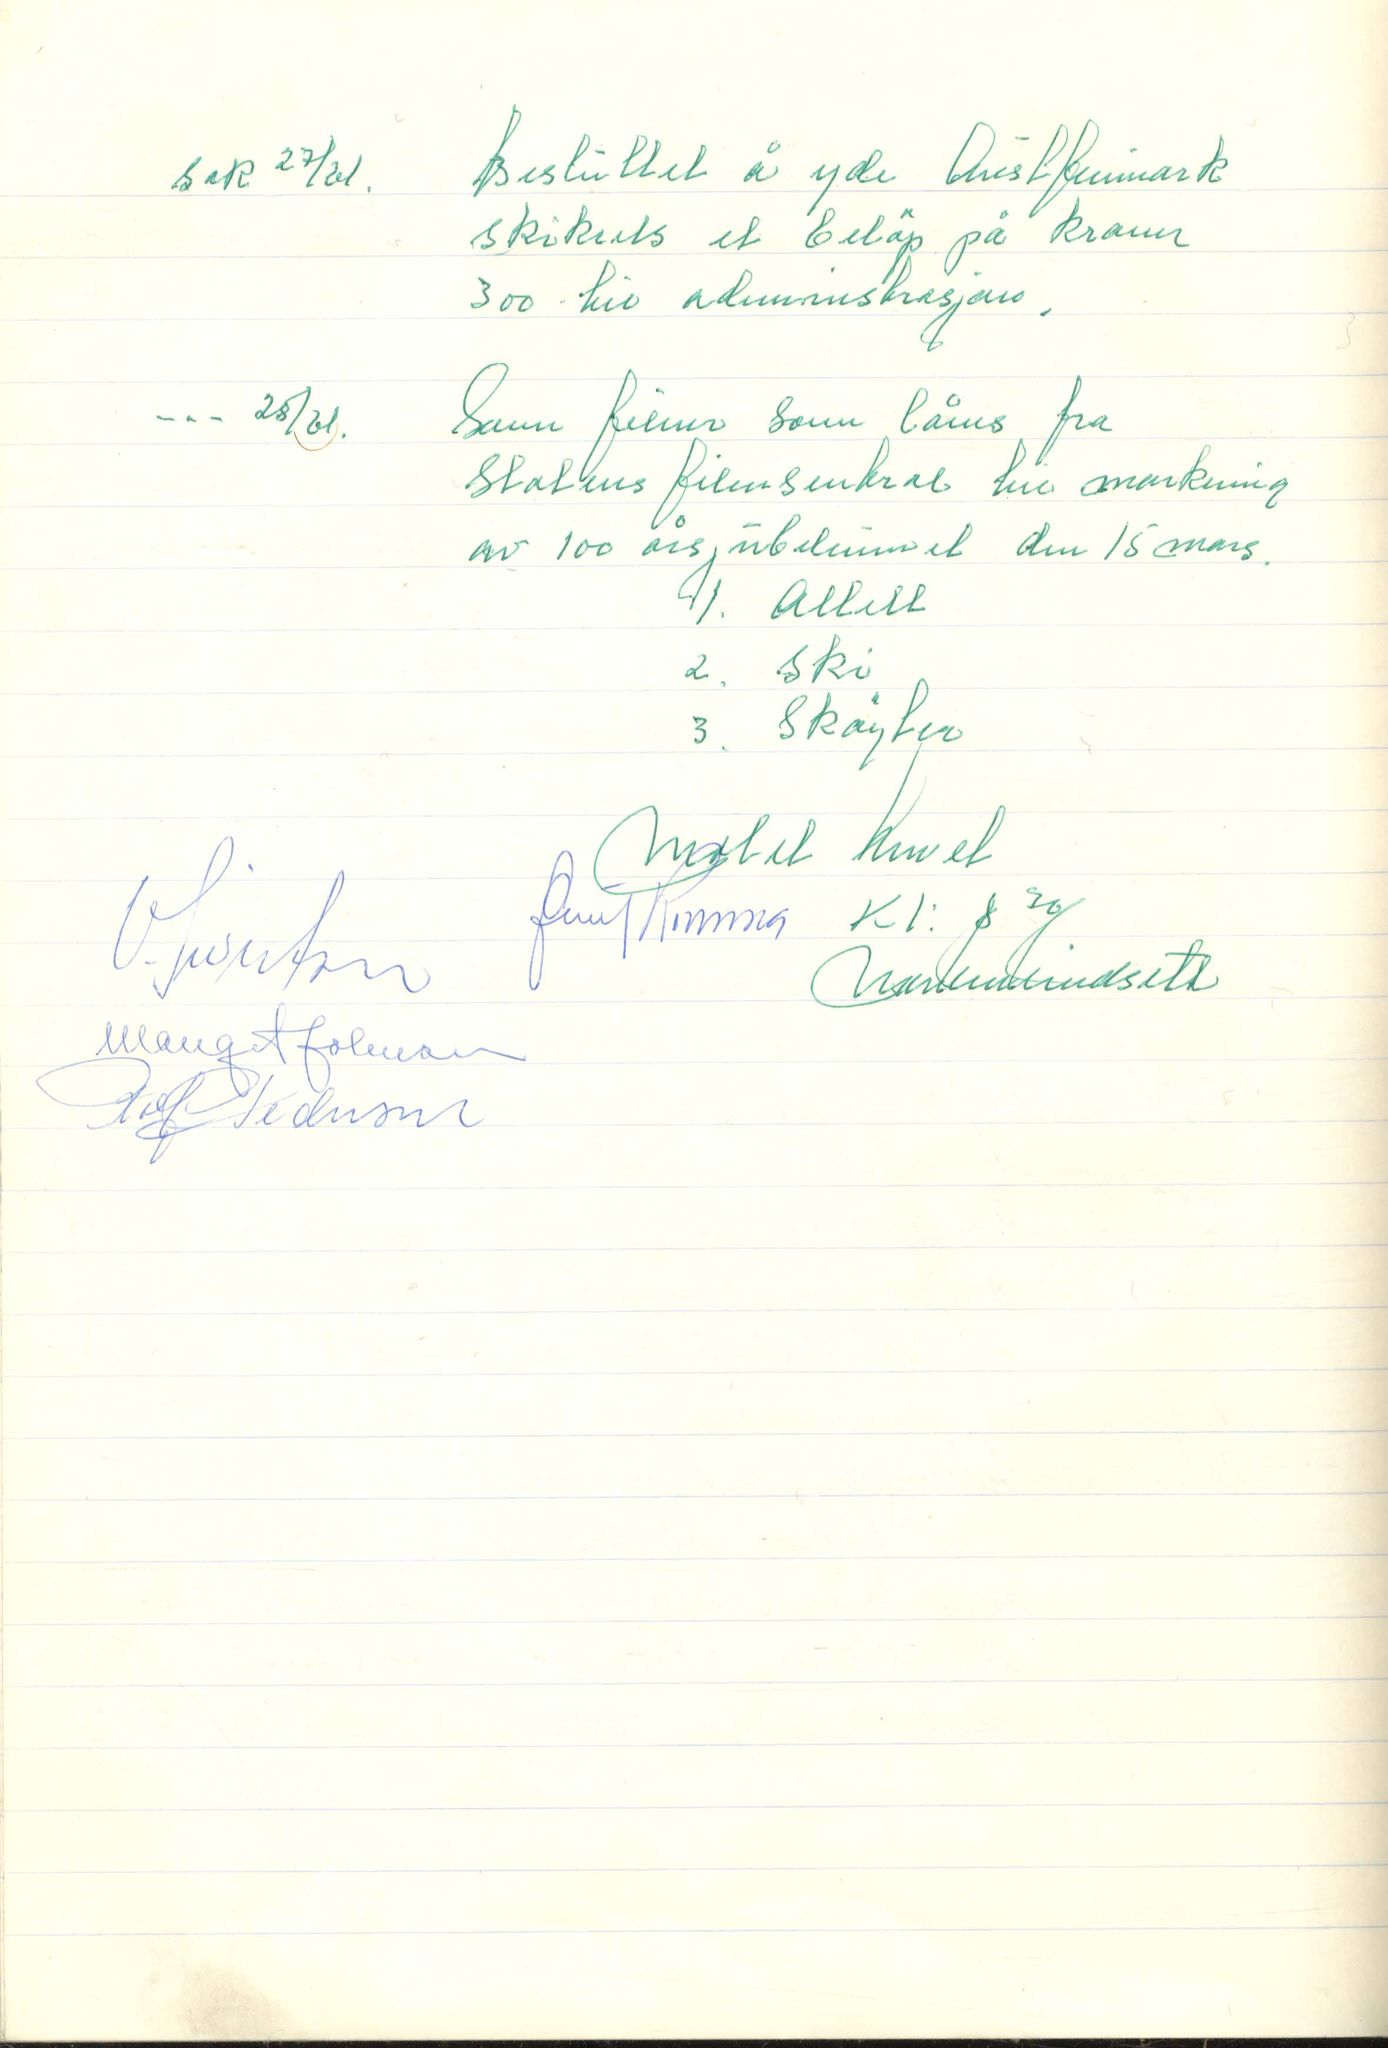 Sak 27/61. Besluttet å yde Austfinnmark
skikrets et beløp på kroner
300 til administrasjon.
--- 28/61. Som filmer som lånes fra
Statens filmsentral til markering
av 100 årsjubileumet den 15 mars.
1. Atlett
2. Ski
3. Skøyter
Møtet hevet
Kl: 8 30
Margit
Rolf Pedersen